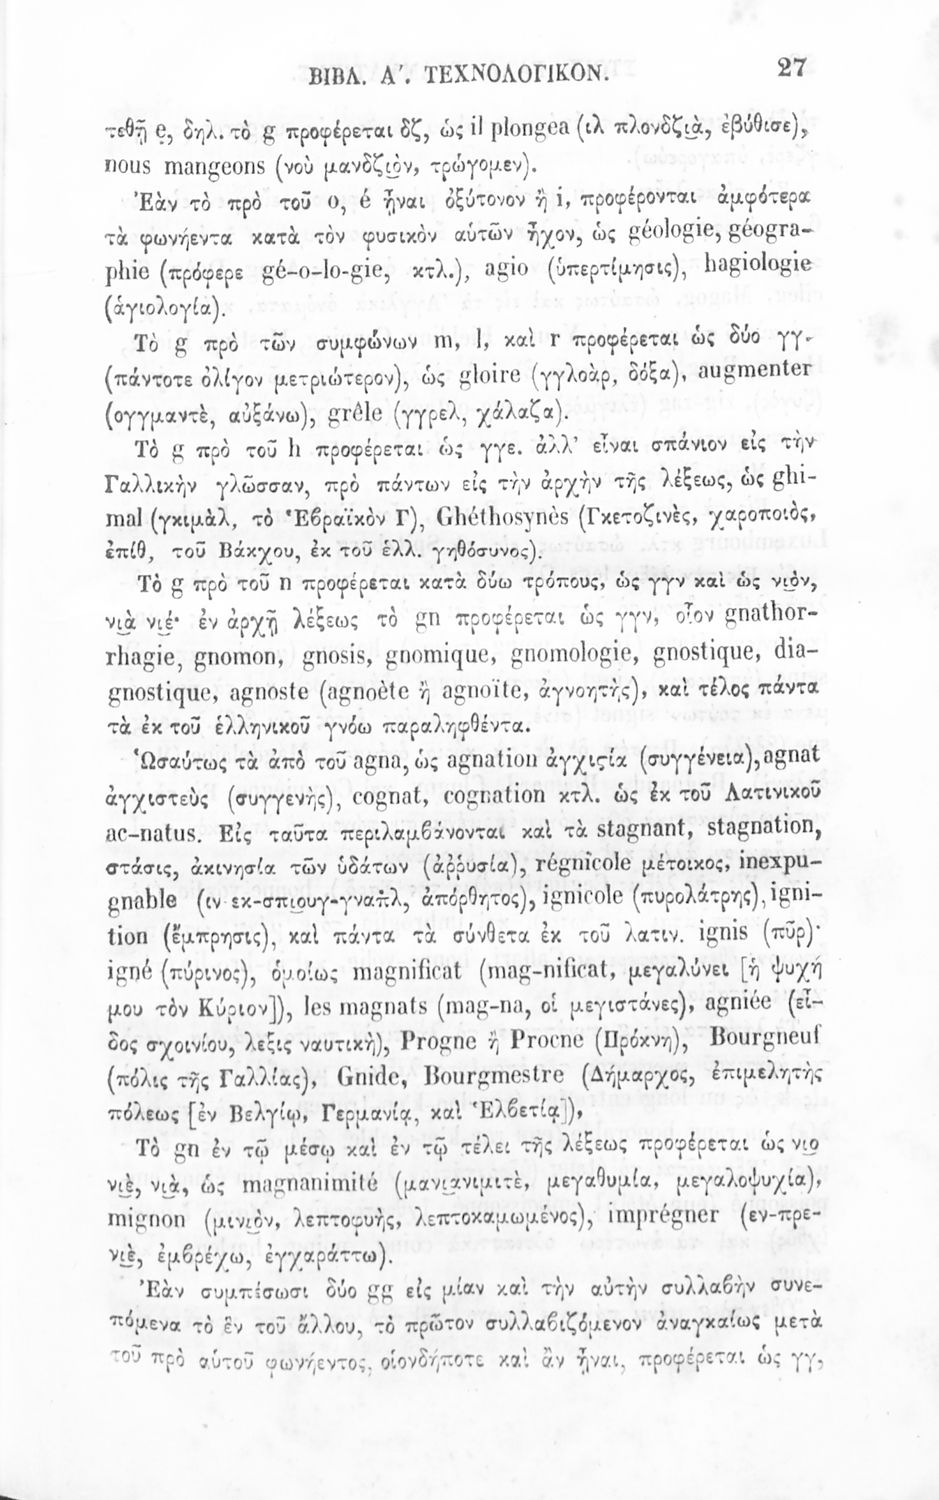 ΒΙΒΛ. Α΄. ΤΕΧΝΟΛΟΓΙΚΟΝ. 27
τεθῇ e, δηλ. τὸ g προφέρεται δζ, ὡς il plongea (ιλ πλονδζι̯ὰ, ἐβύθισε),
nous mangeons (νοὺ μανδζι̯ὸν, τρώγομεν).
Ἐὰν τὸ πρὸ τοῦ o, é ᾖναι ὀξύτονον ἢ i, προφέρονται ἀμφότερα
τὰ φωνήεντα κατὰ τὸν φυσικὸν αὐτῶν ἦχον, ὡς géologie, géogra-
phie (πρόφερε gé-o-lo-gie, κτλ.), agio (ὑπερτίμησις), hagiologie
(ἁγιολογία).
Τὸ g πρὸ τῶν συμφώνων m, l, καὶ r προφέρεται ὡς δύο γγ·
(πάντοτε ὀλίγον μετριώτερον), ὡς gloire (γγλοὰρ, δόξα), augmenter
(ογγμαντὲ, αὐξάνω), grêle (γγρελ, χάλαζα).
Τὸ g πρὸ τοῦ h προφέρεται ὡς γγε. ἀλλ’ εἶναι σπάνιον εἰς τὴν
Γαλλικὴν γλῶσσαν, πρὸ πάντων εἰς τὴν ἀρχὴν τῆς λέξεως, ὡς ghi-
mal (γκιμὰλ, τὸ Ἑβραϊκὸν Γ), Ghéthosynès (Γκετοζινὲς, χαροποιὸς,
ἐπίθ, τοῦ Βάκχου, ἐκ τοῦ ἑλλ. γηθόσυνος).
Τὸ g πρὸ τοῦ n προφέρεται κατὰ δύω τρόπους, ὡς γγν καὶ ὡς νι̯ὸν,
νι̯ὰ νι̯έ· ἐν ἀρχῇ λέξεως τὸ gn προφέρεται ὡς γγν, οἷον gnathor-
rhagie, gnomon, gnosis, gnomique, gnomologie, gnostique, dia-
gnostique, agnoste (agnoète ἢ agnoïte, ἀγνοητὴς), καὶ τέλος πάντα
τὰ ἐκ τοῦ ἑλληνικοῦ γνόω παραληφθέντα.
Ὡσαύτως τὰ ἀπὸ τοῦ agna, ὡς agnation ἀγχιςία (συγγένεια), agnat
ἀγχιστεὺς (συγγενὴς), cognat, cognation κτλ. ὡς ἐκ τοῦ Λατινικοῦ
ac-natus. Εἰς ταῦτα περιλαμβάνονται καὶ τὰ stagnant, stagnation,
στάσις, ἀκινησία τῶν ὑδάτων (ἀῤῥυσία), régnicole μέτοικος, inexpu-
gnable (ιν εκ-σπιουγ-γναπλ, ἀπόρθητος), ignicole (πυρολάτρης), igni-
tion (ἔμπρησις), καὶ πάντα τὰ σύνθετα ἐκ τοῦ λατιν. ignis (πῦρ)·
igné (πύρινος), ὁμοίως magnificat (mag-nificat, μεγαλύνει [ἡ ψυχή
μου τὸν Κύριον]), les magnats (mag-na, οἱ μεγιστάνες), agniée (εἶ-
δος σχοινίου, λεξις ναυτικὴ), Progne ἢ Procne (Πρόκνη), Bourgneuf
(πόλις τῆς Γαλλίας), Gnide, Bourgmestre (Δήμαρχος, ἐπιμελητὴς
πόλεως [ἐν Βελγίῳ, Γερμανίᾳ, καὶ Ἑλβετίᾳ]),
Τὸ gn ἐν τῷ μέσῳ καὶ ἐν τῷ τέλει τῆς λέξεως προφέρεται ὡς νι̯ο
νι̯ὲ, νι̯ὰ, ὡς magnanimité (μανι̯ανιμιτὲ, μεγαθυμία, μεγαλοψυχία),
mignon (μινι̯ὸν, λεπτοφυὴς, λεπτοκαμωμένος), imprégner (εν-πρε-
νι̯ὲ, ἐμβρέχω, ἐγχαράττω).
Ἐὰν συμπέσωσι δύο gg εἰς μίαν καὶ τὴν αὐτὴν συλλαβὴν συνε-
πόμενα τὸ ἓν τοῦ ἄλλου, τὸ πρῶτον συλλαβιζόμενον ἀναγκαίως μετὰ
τοῦ πρὸ αὐτοῦ φωνήεντος, οἱονδήποτε καὶ ἂν ᾖναι, προφέρεται ὡς γγ,